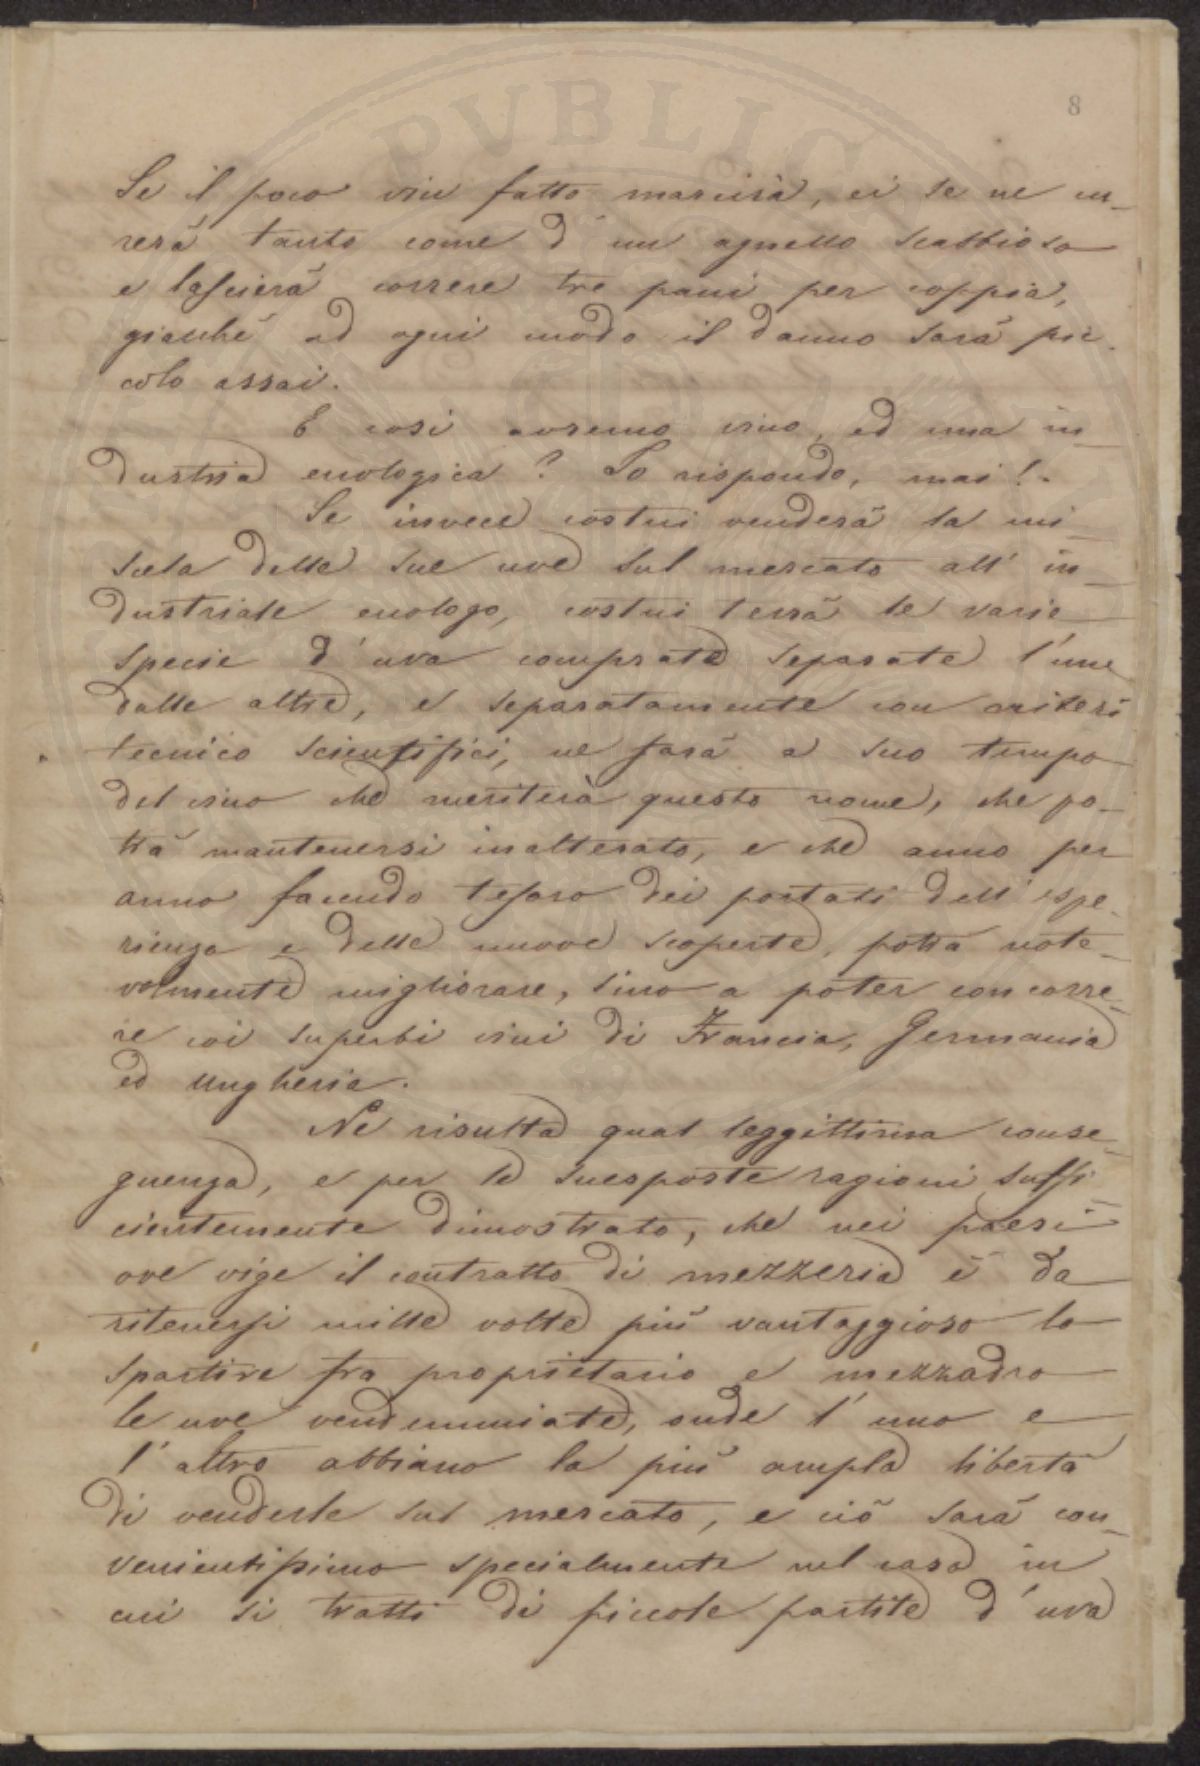 8
Se il poco vin fatto marcirà, ei se ne cu-
rerà tanto come d'un agnello scabbioso
e lascierà correre tre pani per coppia,
giacchè ad ogni modo il danno sarà pic-
colo assai.
E così avremo vino, ed una in-
dustria enologica? Io rispondo, mai!.
Se invece costui venderà la mi-
scela delle sue uve sul mercato all'in-
dustriale enologo, costui terrà le varie
specie d'uva comprate separate l'une
dalle altre, e separatamente con criteri
tecnico scientifici, ne farà a suo tempo
del vino che meriterà questo nome, che po-
trà mantenersi inalterato, e che anno per
anno facendo tesoro dei portati dell'espe-
rienza e delle nuove scoperte, potrà note-
volmente migliorare, sino a poter concorre-
re coi superbi vini di Francia, Germania
ed Ungheria.
Ne risulta qual leggittima conse-
guenza, e per le suesposte ragioni suffi-
cientemente dimostrato, che nei paesi
ove vige il contratto di mezzeria è da
ritenersi mille volte più vantaggioso lo
spartire fra proprietario e mezzadro
le uve vendemmiate, onde l'uno e
l'altro abbiano la più ampla libertà
di venderle sul mercato, e ciò sarà con-
venientissimo specialmente nel caso in
cui si tratti di piccole partite d'uva
PVBLIC